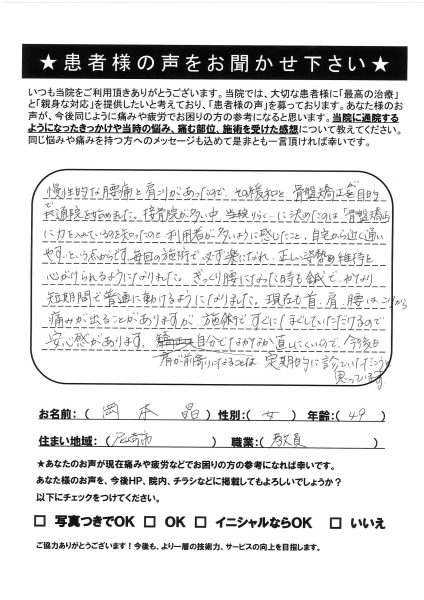 ★患者様の声をお聞かせ下さい★
いつも当院をご利用頂きありがとうございます。当院では、大切な患者様に「最高の治療」
と「親身な対応」を提供したいと考えており、「患者様の声」を募っております。あなた様のお
声が、今後同じように痛みや疲労でお困りの方の参考になると思います。当院に通院する
ようになったきっかけや当時の悩み、痛む部位、施術を受けた感想について教えてください。
同じ悩みや痛みを持つ方へのメッセージも込めて是非とも一言頂ければ幸いです。
慢性的な腰痛と肩こりがあったので、その緩和と骨盤矯正を目的
で通院を始めました。接骨院が多い中、当院に決めたのは、「骨盤矯正」
に力を入れているのを知ったのと利用者が多いように感じたこと、自宅から近く通い
やすいという点からです。毎回の施術で必ず楽になれ、正しい姿勢の維持を
心がけられるようになりました。ぎっくり腰になった時も鍼で、かなり
短期間で普通に動けるようになりました。現在も首、肩、腰はこりから
痛みが出ることがありますが、施術ですぐにほぐしていただけるので
安心感があります。自分でなかなか直しにくいので、今後も
肩が前寄りになることは、定期的に診ていただこうと
思っています。
お名前:( 岡本 晶 ) 性別:( 女 ) 年齢:( 49 )
住まい地域:( 尼崎市 ) 職業:( 教員 )
★あなたのお声が現在痛みや疲労などでお困りの方の参考になれば幸いです。
あなた様のお声を、今後HP、院内、チラシなどに掲載してもよろしいでしょうか?
以下にチェックをつけてください。
□ 写真つきでOK □ OK □ イニシャルならOK □ いいえ
ご協力ありがとうございます!今後も、より一層の技術力、サービスの向上を目指します。